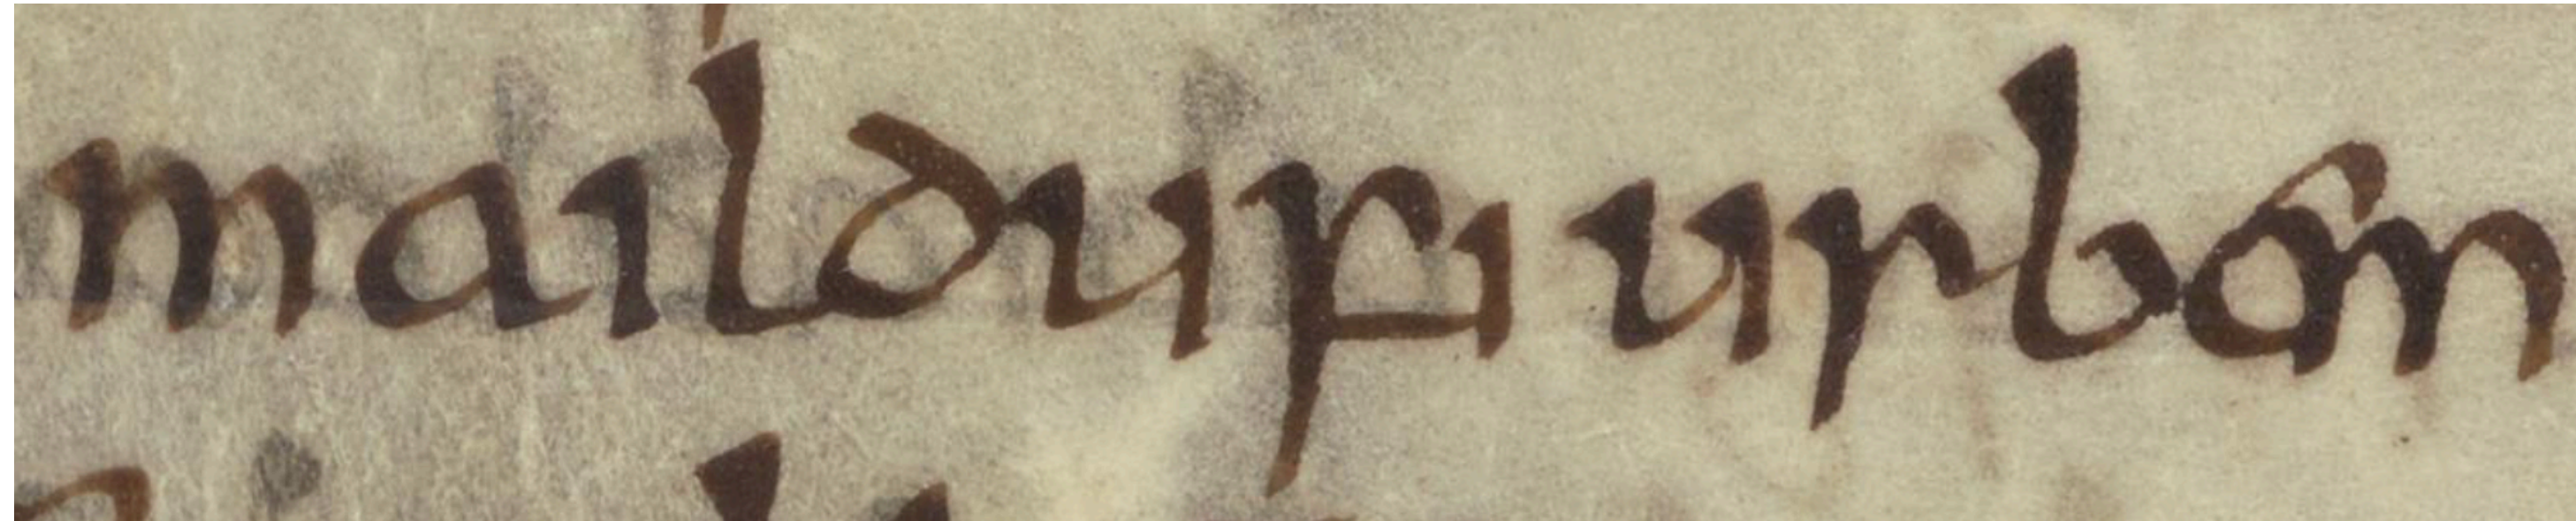 maildufi urbem